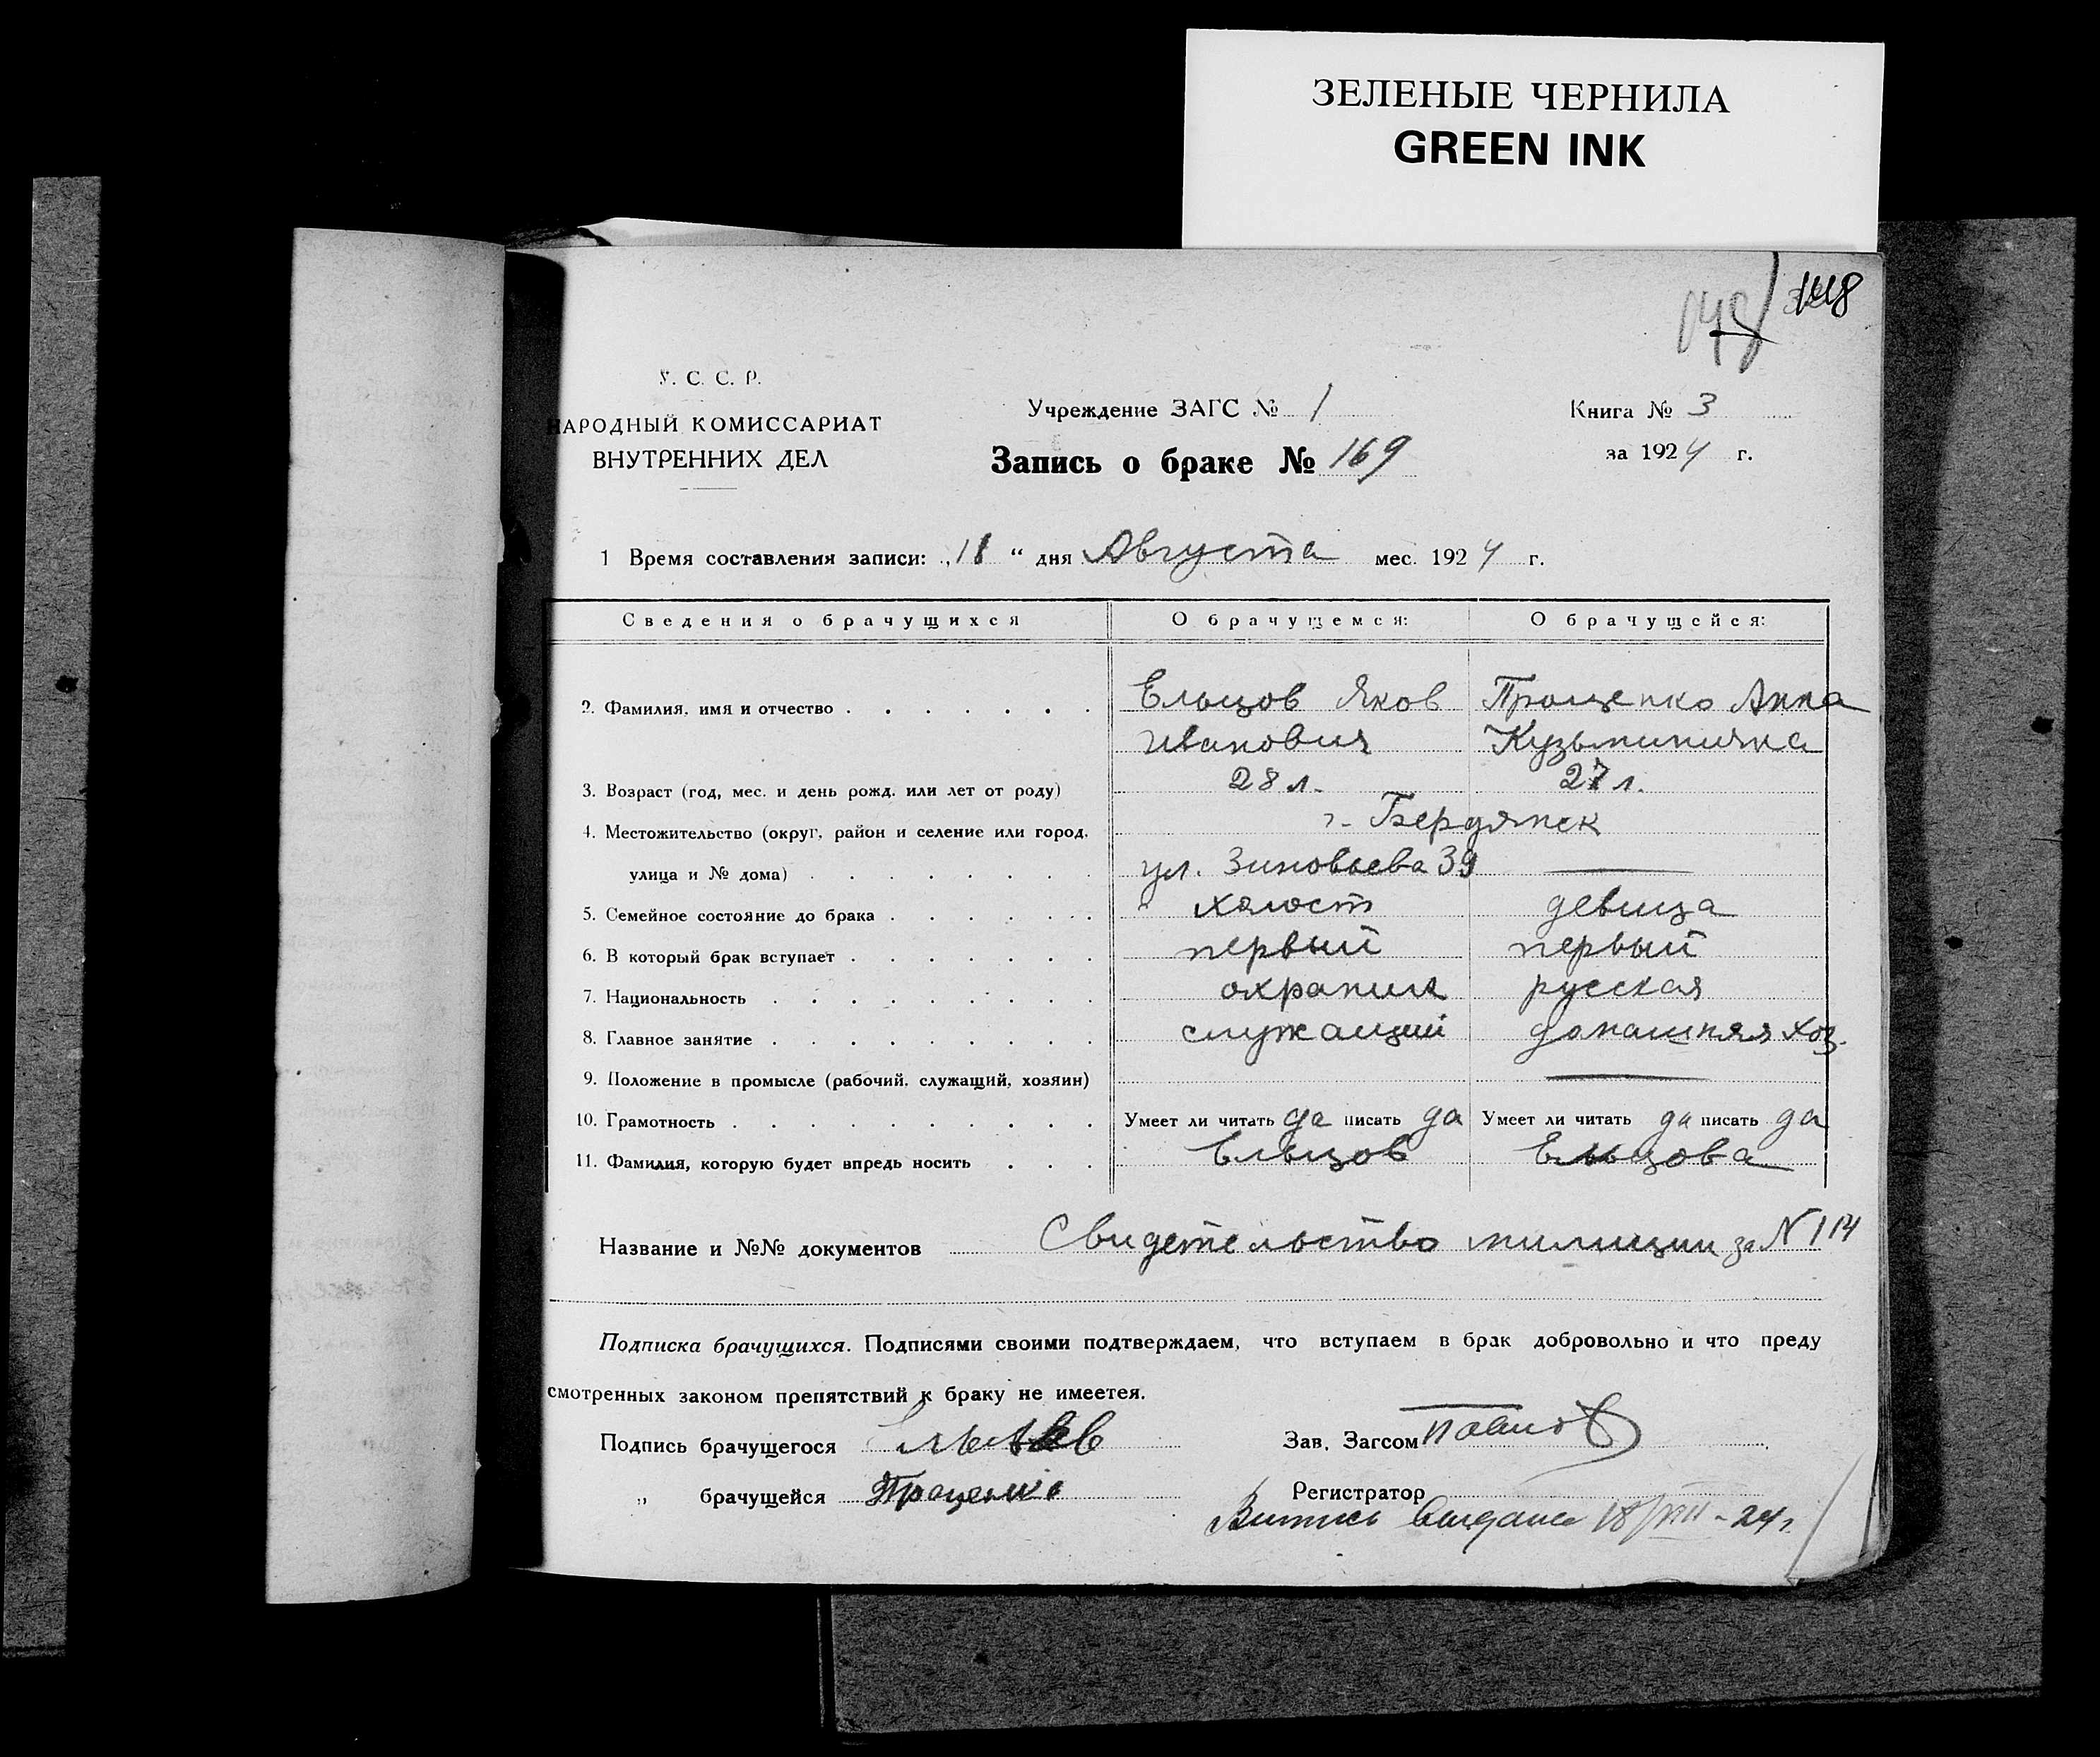 ЗЕЛЕНЫЕ ЧЕРНИЛА
GREEN INK
148 148
У. С. С. Р.
НАРОДНЫЙ КОМИССАРИАТ
ВНУТРЕННИХ ДЕЛ
Учреждение ЗАГС № 1
Запись о браке № 169
Книга № 3
за 1924 г.
1 Время составления записи: „18 “ дня Августа мес. 1924 г.
Сведения о брачущихся О брачущемся: О брачущейся:
2. Фамилия, имя и отчество Ельцов Яков Проценко Анна
Иванович Кузьминична
3. Возраст (год, мес. и день рожд. или лет от роду) 28 л. 27 л.
4. Местожительство (округ, район и селение или город, г. Бердянск
улица и № дома) ул. Зиновьева 39 —
5. Семейное состояние до брака холост девица
6. В который брак вступает первый первый
7. Национальность русская
8. Главное занятие служащий домашняя хоз.
9. Положение в промысле (рабочий, служащий, хозяин) —
10. Грамотность Умеет ли читать да писать да Умеет ли читать да писать да
11. Фамилия, которую будет впредь носить Ельцов Ельцова
Название и №№ документов Свидетельство милиции за N 114
Подписка брачущихся. Подписями своими подтверждаем, что вступаем в брак добровольно и что преду
смотренных законом препятствий к браку не имеетея.
Подпись брачущегося Зав. Загсом
„ брачущейся Проценко Регистратор
Выпись выдана 18/VIII - 24 г.